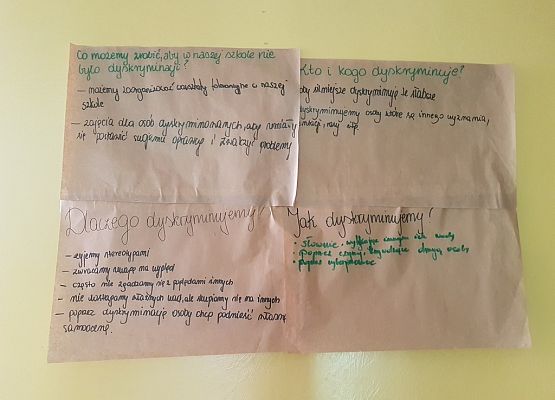 Co możemy zrobić, aby w naszej szkole nie
było dyskryminacji?
– możemy zorganizować warsztaty taneczne w naszej
szkole
– zajęcia dla osób dyskryminowanych, aby umiały
się postawić swojemu oprawcy i zwalczyć problemy
Kto i kogo dyskryminuje?
silniejsze dyskryminują te słabsze
dyskryminujemy osoby które są innego wyznania,
rasy itp.
Dlaczego dyskryminujemy?
– żyjemy stereotypami
– zwracamy uwagę na wygląd
– często nie zgadzamy się z poglądami innych
– nie dostrzegamy własnych wad, ale skupiamy się na innych
– poprzez dyskryminację osoby chcą podnieść własną
samoocenę.
Jak dyskryminujemy?
• słownie, wytykając innym ich wady
• poprzez czyny, krzywdząc drugą osobę
• poprzez